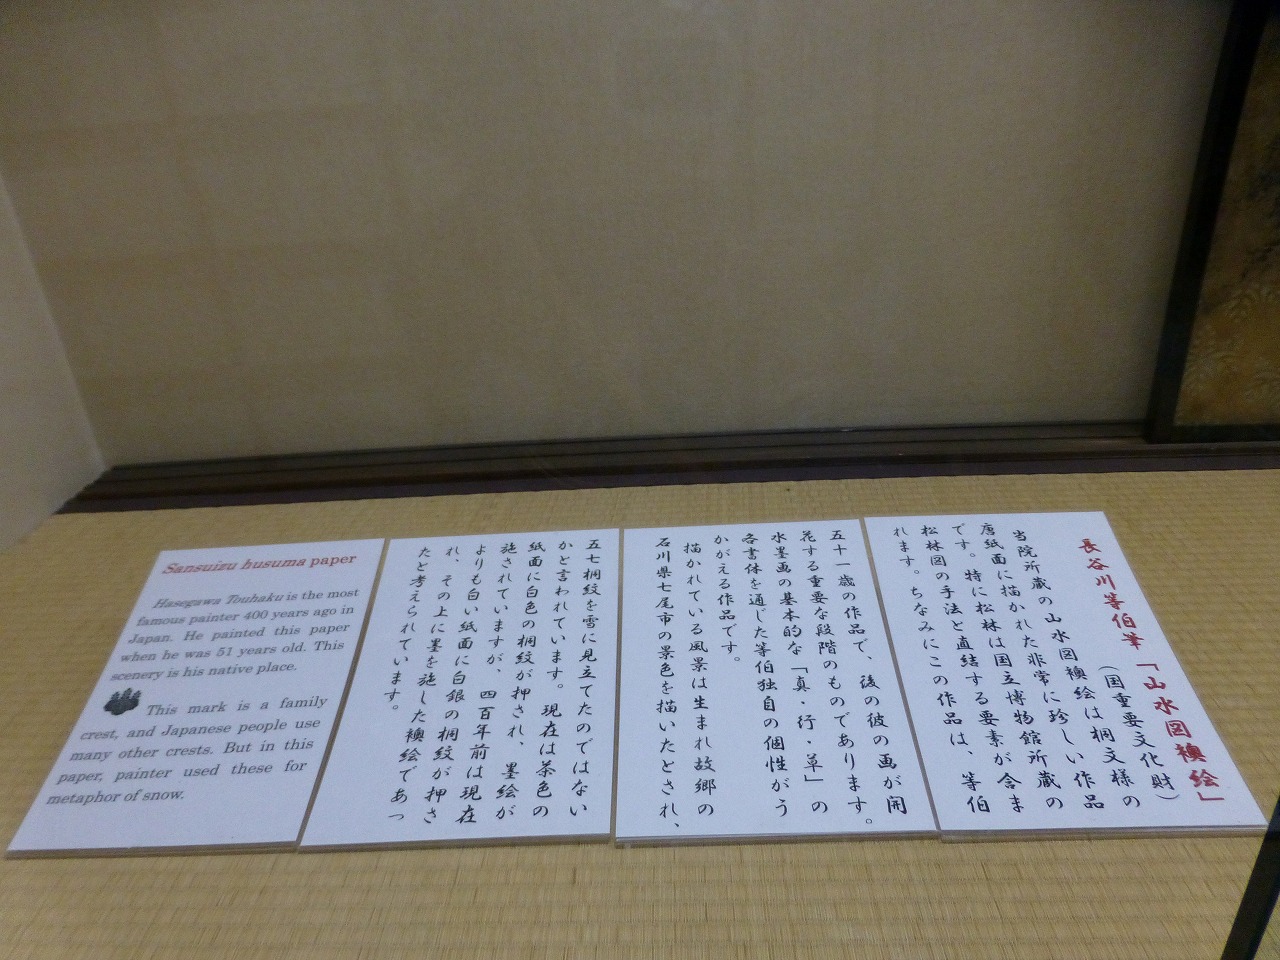 長谷川等伯筆「山水図襖絵」
(国重要文化財)
当院所蔵の山水図襖絵は桐文様の
唐紙面に描かれた非常に珍しい作品
です。特に松林は国立博物館所蔵の
松林図の手法と直結する要素が含ま
れます。ちなみにこの作品は、等伯
五十一歳の作品で、後の彼の画が開
花する重要な段階のものであります。
水墨画の基本的な「真・行・草」の
各書体を通じた等伯独自の個性がう
かがえる作品です。
描かれている風景は生まれ故郷の
石川県七尾市の景色を描いたとされ、
五七桐紋を雪に見立てたのではない
かと言われています。現在は茶色の
紙面に白色の桐紋が押され、墨絵が
施されていますが、四百年前は現在
よりも白い紙面に白銀の桐紋が押さ
れ、その上に墨を施した襖絵であっ
たと考えられています。
Sansuizu husuma paper
Hasegawa Touhaku is the most
famous painter 400 years ago in
Japan. He painted this paper
when he was 51 years old. This
scenery is his native place.
This mark is a family
crest, and Japanese people use
many other crests. But in this
paper, painter used these for
metaphor of snow.